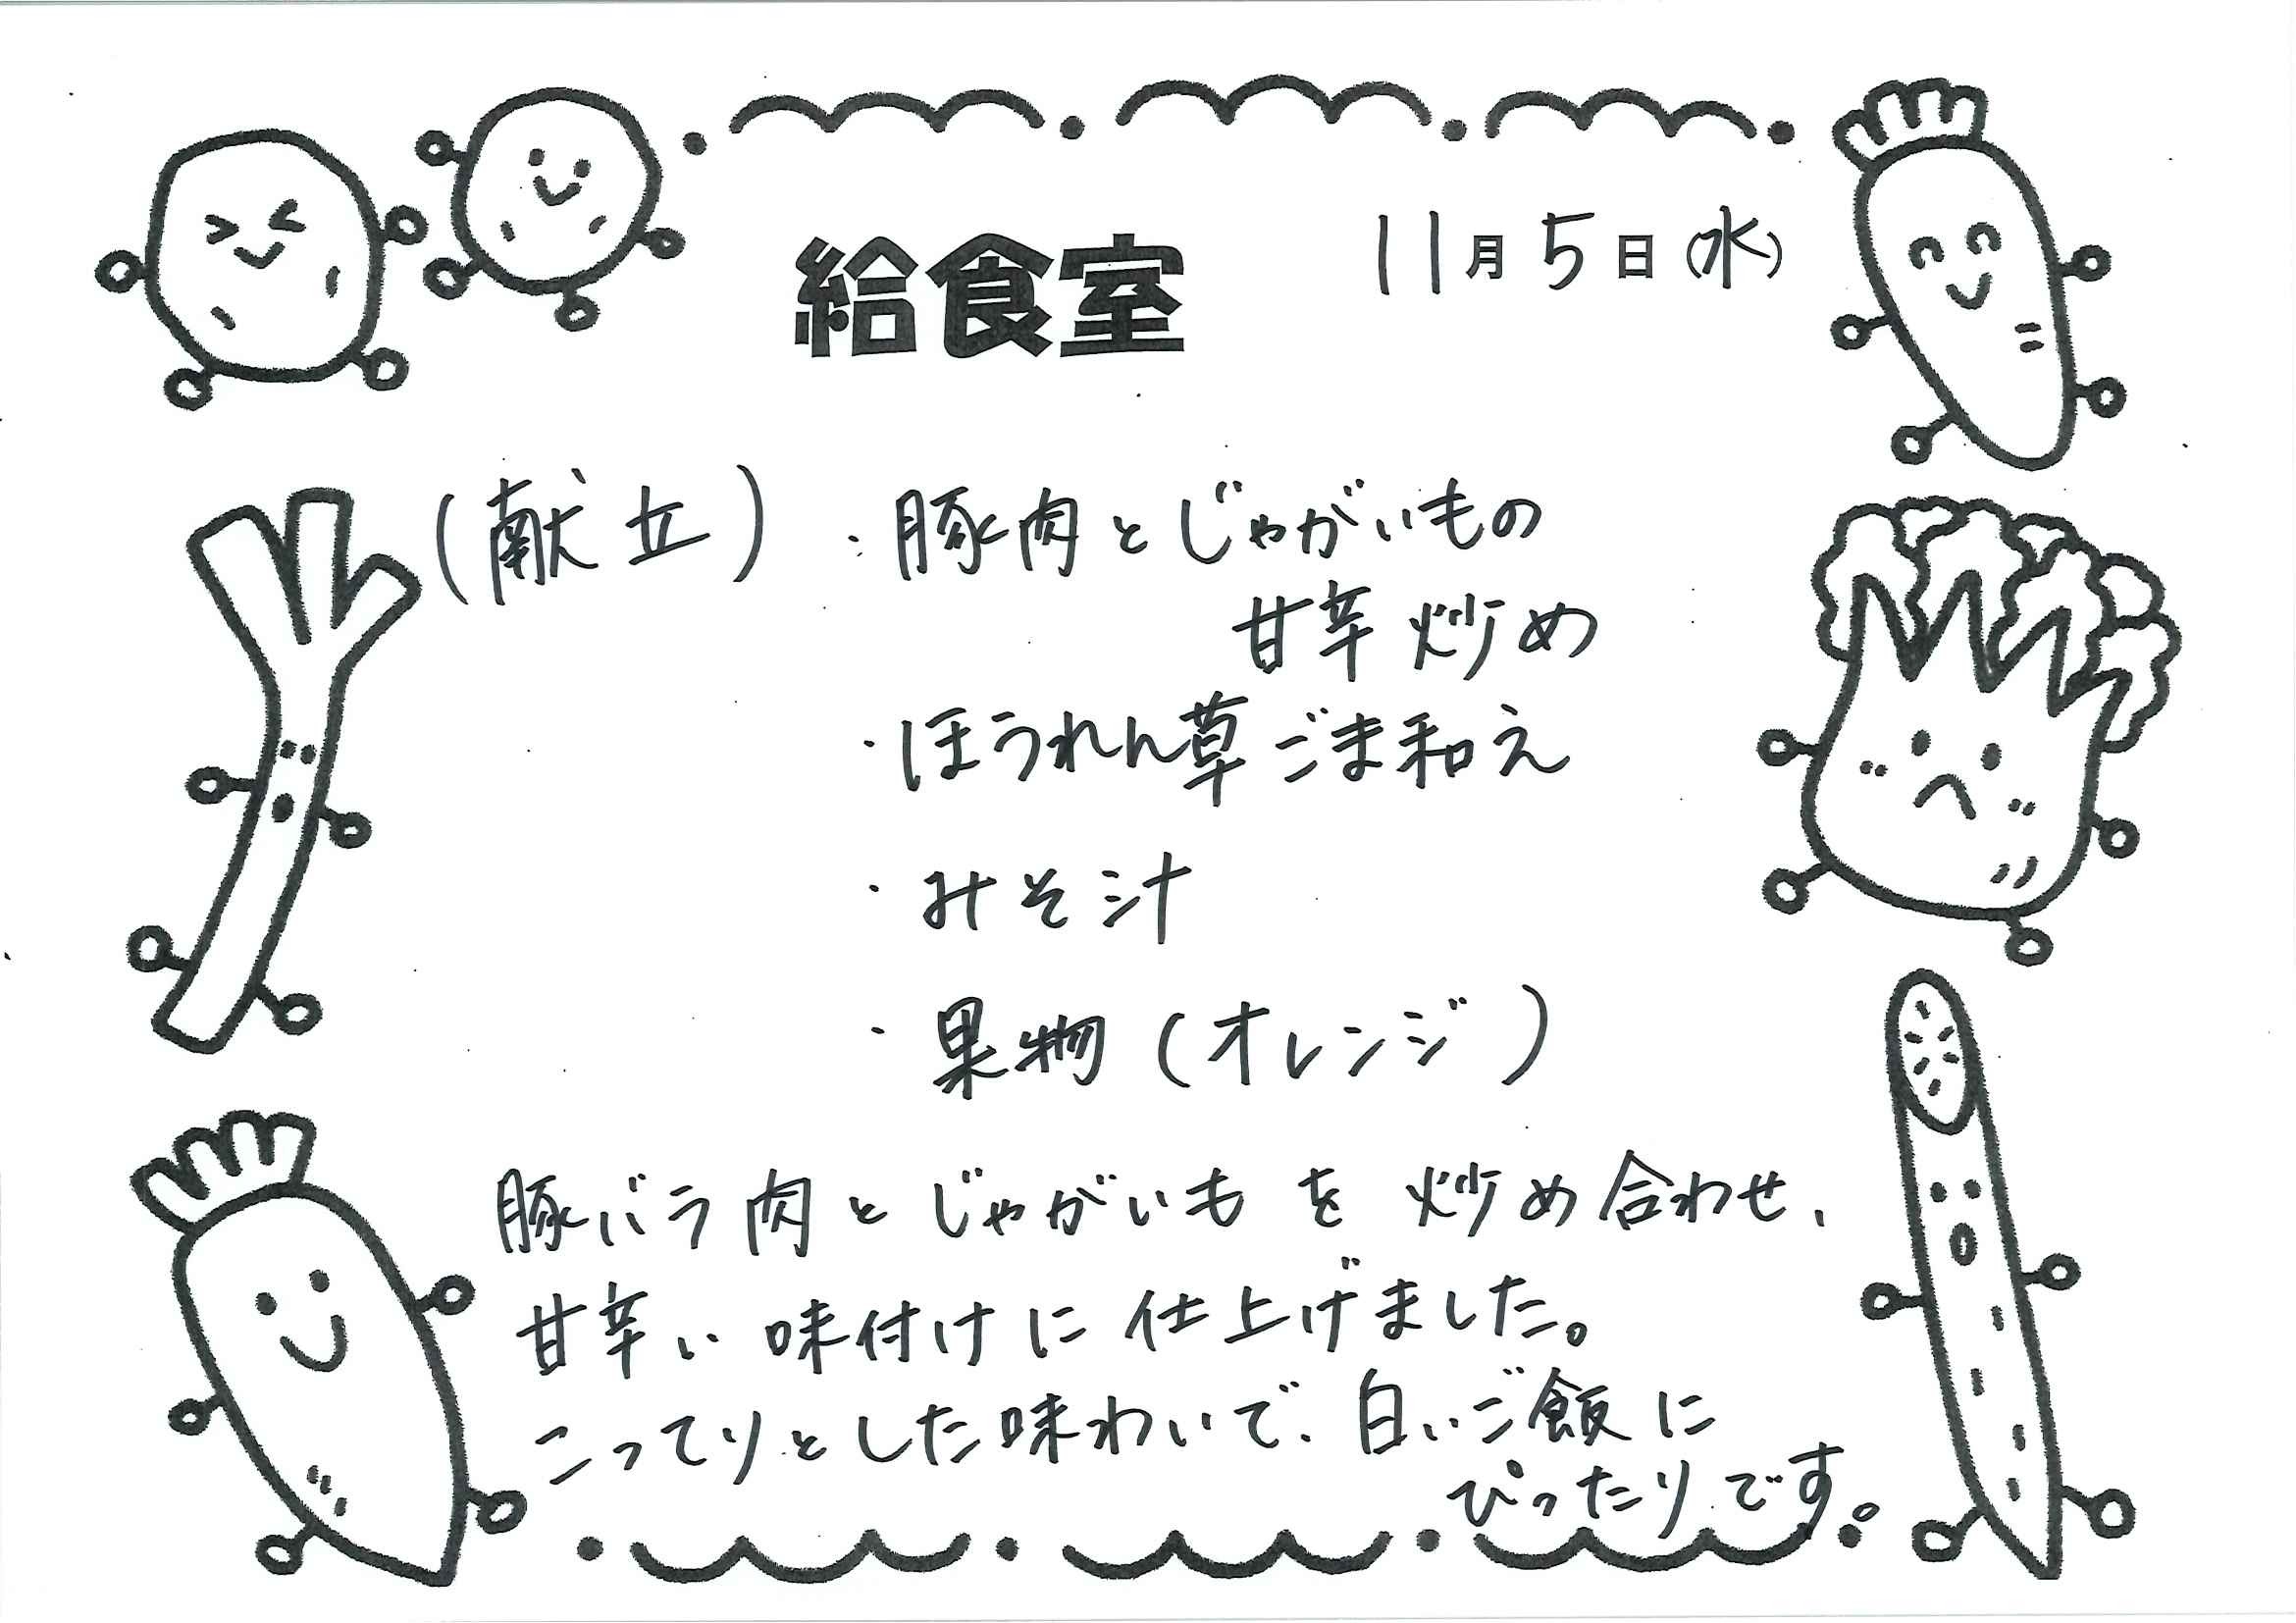 給食室
11月5日(水)
(献立)・豚肉とじゃがいもの
甘辛炒め
・ほうれん草ごま和え
・みそ汁
・果物(オレンジ)
豚バラ肉とじゃがいもを炒め合わせ、
甘辛い味付けに仕上げました。
こってりとした味わいで、白いご飯に
ぴったりです。